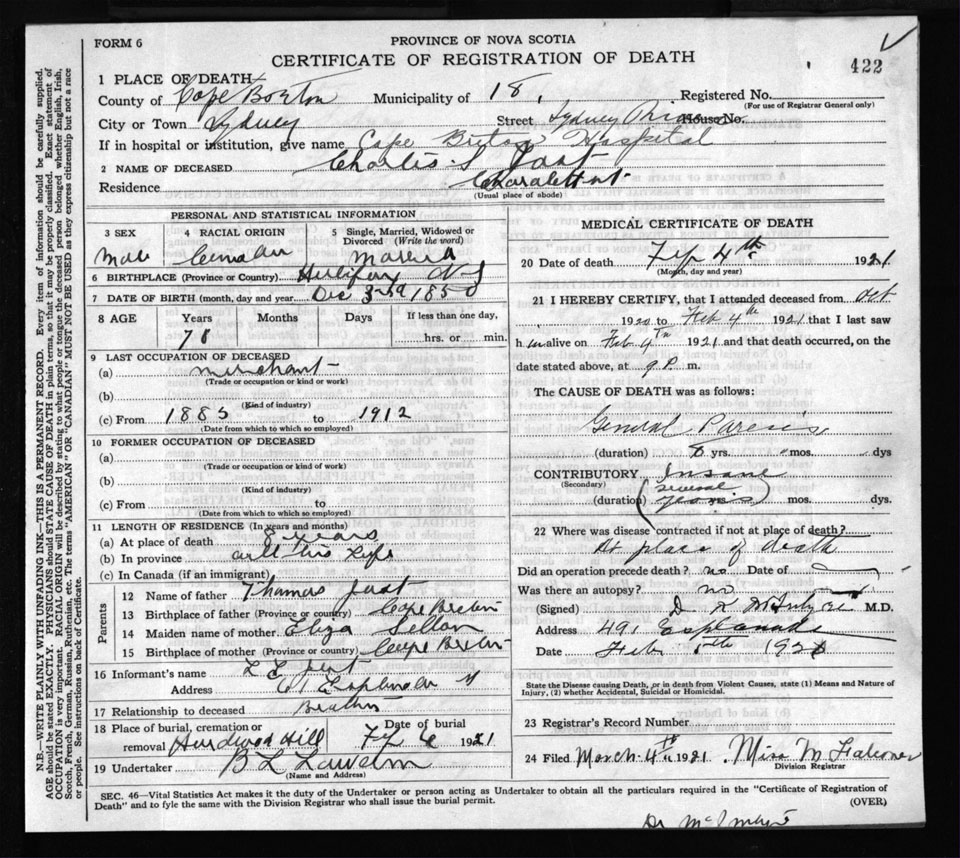 FORM 6
PROVINCE OF NOVA SCOTIA
CERTIFICATE OF REGISTRATION OF DEATH
422
1 PLACE OF DEATH
County of Cape Breton Municipality of 18. Registered No.
(For use of Registrar General only)
City or Town Sydney Street Sydney House No.
If in hospital or institution, give name Cape Breton Hospital
2 NAME OF DECEASED Charles S Jost
Residence
(Usual place of abode)
PERSONAL AND STATISTICAL INFORMATION
3 SEX 4 RACIAL ORIGIN 5 Single, Married, Widowed or Divorced (Write the word)
Male
6 BIRTHPLACE (Province or Country). Halifax NS
7 DATE OF BIRTH (month, day and year Dec 3rd 1850
8 AGE Years Months Days If less than one day,
70 hrs. or min.
9 LAST OCCUPATION OF DECEASED
(a) merchant
(Trade or occupation or kind or work)
(b)
(Kind of industry)
(c) From 1885 to 1912
(Date from which to which so employed)
10 FORMER OCCUPATION OF DECEASED
(a)
(Trade or occupation or kind of work)
(b)
(Kind of industry)
(c) From to
(Date from which to which so employed)
11 LENGTH OF RESIDENCE (In years and months)
(a) At place of death 8 years
(b) In province all his life
(c) In Canada (if an immigrant)
Parents
12 Name of father Thomas Jost
13 Birthplace of father (Province or country) Cape Breton
14 Maiden name of mother. Eliza
15 Birthplace of mother (Province or country) Cape Breton
16 Informant's name Jost
Address Esplanade
17 Relationship to deceased Brother
18 Place of burial, cremation or removal Hardwood Hill Date of burial 6 1921
19 Undertaker B L
(Name and Address)
MEDICAL CERTIFICATE OF DEATH
20 Date of death Feb 4th 1921
(Month, day and year)
21 I HEREBY CERTIFY, that I attended deceased from Oct.
1920 to Feb 4th 1921 that I last saw
h im alive on Feb 4th 1921 and that death occurred, on the
date stated above, at 9 P. m.
The CAUSE OF DEATH was as follows:
General Paresis
(duration) 8 yrs. mos. dys
CONTRIBUTORY Insane
(Secondary)
(duration) several years mos. dys.
22 Where was disease contracted if not at place of death?
At place of death
Did an operation precede death? no Date of
Was there an autopsy? no
(Signed) D K McIntyre M.D.
Address 491 Esplanade
Date Feb 192
State the Disease causing Death, or in death from Violent Causes, state (1) Means and Nature of Injury, (2) whether Accidental, Suicidal or Homicidal.
23 Registrar's Record Number
24 Filed March 4th 1921 Miss M Falconer
Division Registrar
SEC. 46—Vital Statistics Act makes it the duty of the Undertaker or person acting as Undertaker to obtain all the particulars required in the "Certificate of Registration of
Death" and to fyle the same with the Division Registrar who shall issue the burial permit.
(OVER)
Dr McIntyre
N.B.—WRITE PLAINLY WITH UNFADING INK—THIS IS A PERMANENT RECORD. Every item of information should be carefully supplied.
AGE should be stated EXACTLY. PHYSICIANS should STATE CAUSE OF DEATH in plain terms, so that it may be properly classified. Exact statement of
OCCUPATION is very important. RACIAL ORIGIN will be described by stating to what people or tongue the deceased person belonged, whether English, Irish,
Scotch, French, German, Russian, Ruthenian, etc. The terms "AMERICAN" OR "CANADIAN" MUST NOT BE USED as they express citizenship but not a race
or people. See instructions on back of Certificate.